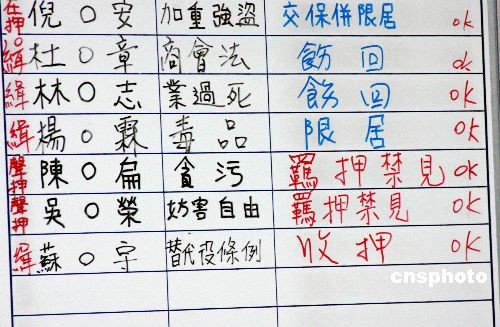 在押 倪○安 加重強盜 交保併限居 ok
緝 杜○章 商會法 飭回 ok
緝 林○志 業過死 飭回 ok
緝 楊○霖 毒品 限居 ok
聲押 陳○扁 貪污 羈押禁見 ok
聲押 吳○榮 妨害自由 羈押禁見 ok
緝 蘇○守 替代役條例 收押 ok
cnsphoto